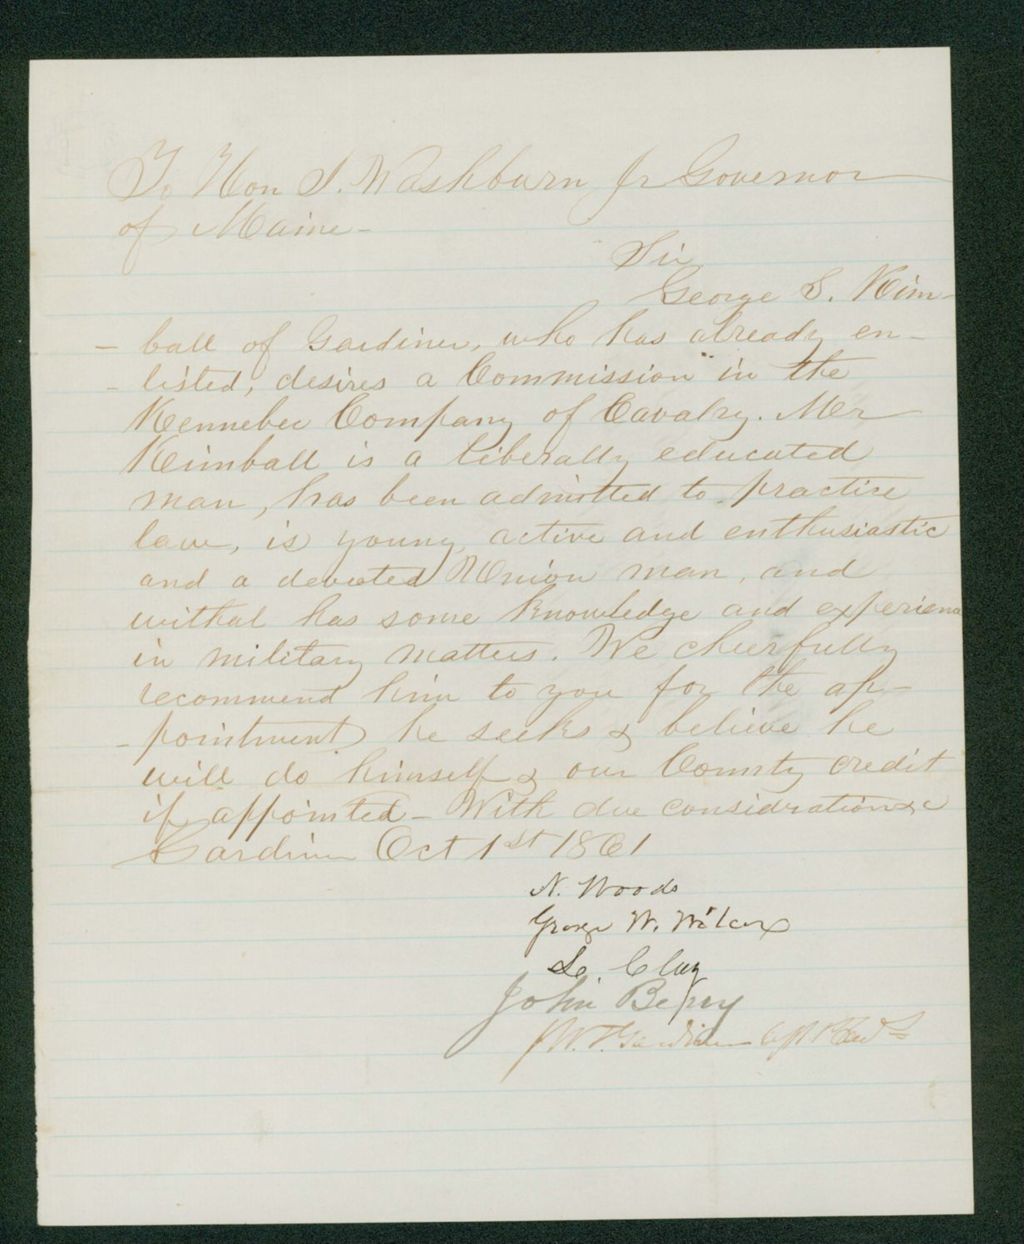 To Hon I. Washburn Jr Governor
of Maine -
Sir
George S. Kim-
- ball of Gardiner, who has already en-
- listed, desires a Commission in the
Kennebec Company of Cavalry. Mr
Kimball is a liberally educated
man, has been admitted to practise
law, is young, active and enthusiastic
and a devoted Union man, and
withal has some knowledge and experience
in military matters. We cheerfully
recommend him to you for the ap-
- pointment he seeks & believe he
will do himself & our County credit
if appointed - With due consideration &c
Gardiner Oct 1st 1861
N. Woods
George W. Wilcox
Clay
John Berry
Gardiner